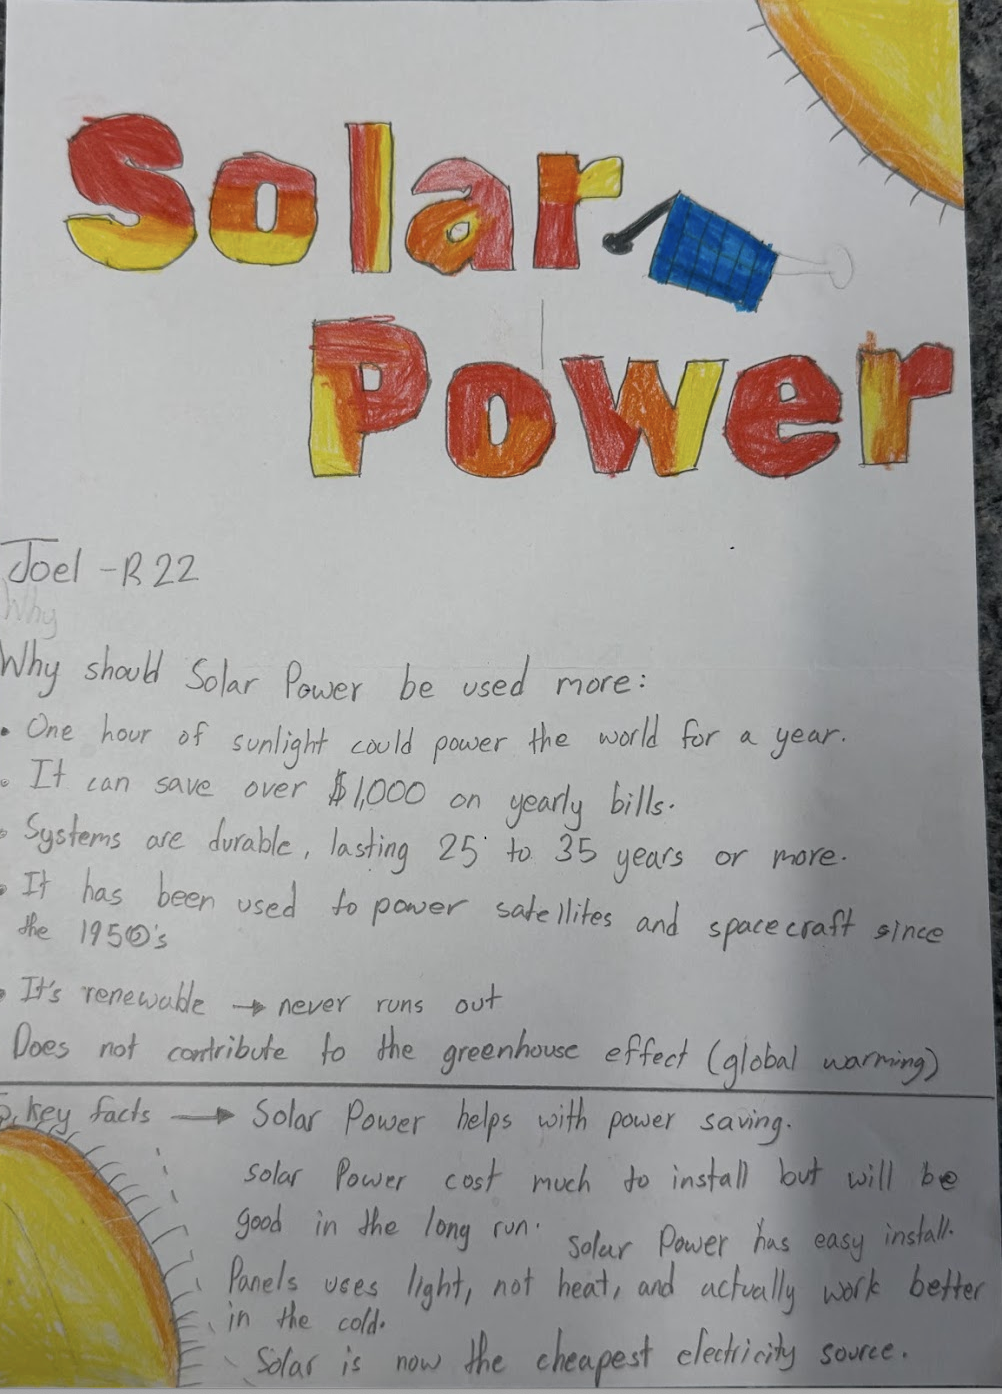 Solar
Power
Joel - R22
Why
Why should Solar Power be used more:
• One hour of sunlight could power the world for a year.
• It can save over $1,000 on yearly bills.
• Systems are durable, lasting 25 to 35 years or more.
• It has been used to power satellites and spacecraft since
the 1950's
• It's renewable → never runs out
Does not contribute to the greenhouse effect (global warming)
5 key facts → Solar Power helps with power saving.
solar Power cost much to install but will be
good in the long run. solar Power has easy install.
Panels uses light, not heat, and actually work better
in the cold.
Solar is now the cheapest electricity source.